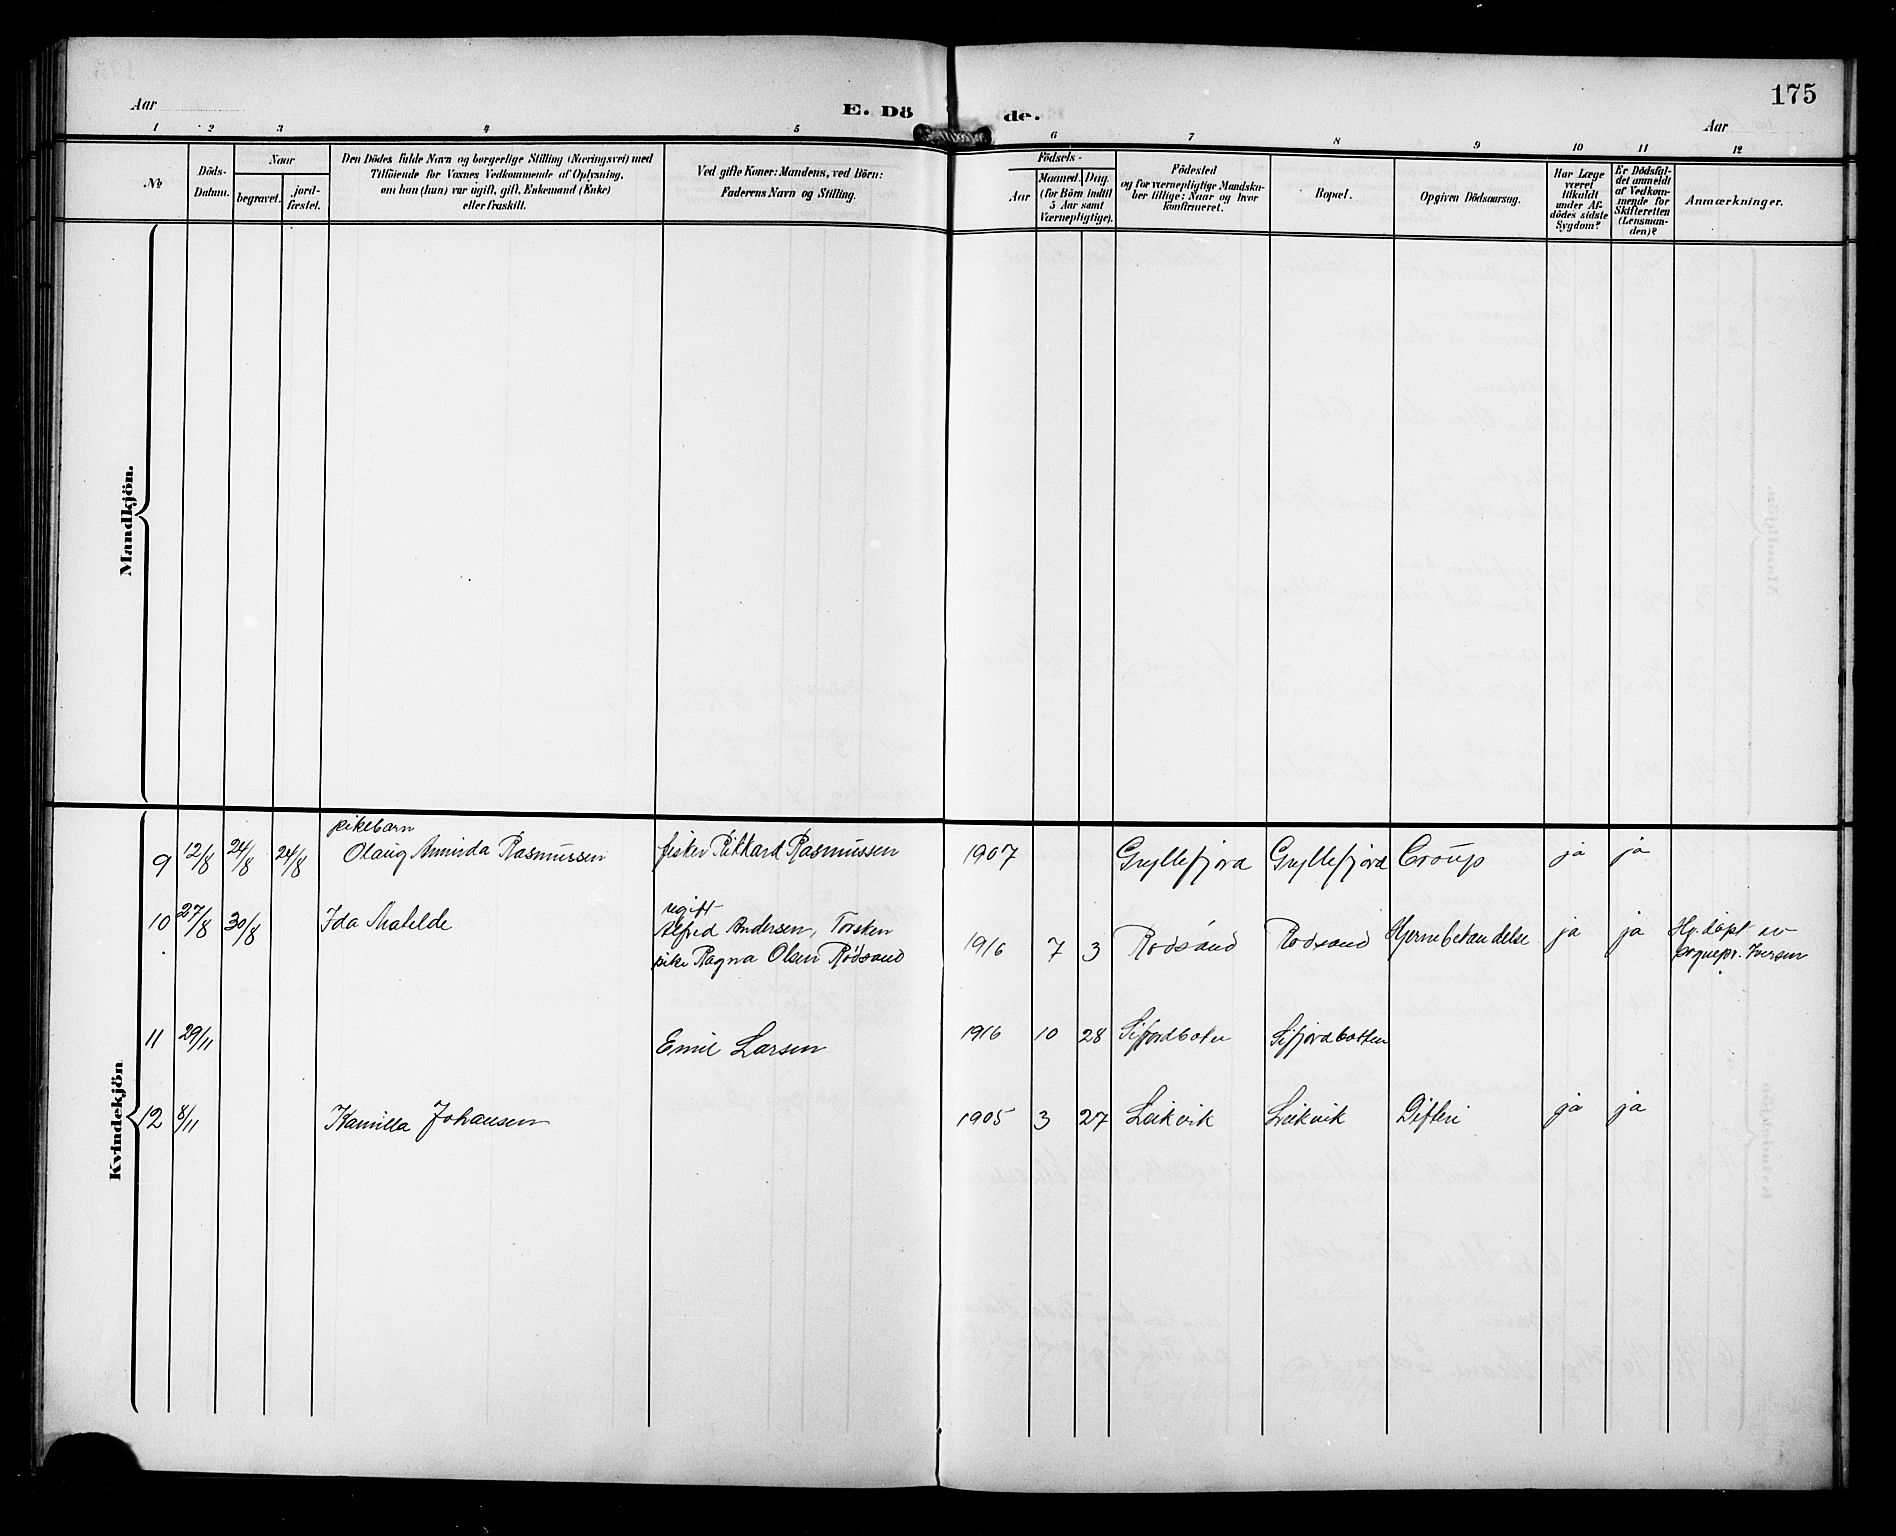 175
Aar
E. Dö de.
Aar
1 2 3 4 5 6 7 8 9 10 11 12
No
Döds-
Datum.
Naar
begravet.
jord-
fæstet.
Den Dödes fulde Navn og borgerlige Stilling (Næringsvei) med
Tilföiende for Voxnes Vedkommende af Oplysning,
om han (hun) var ugift, gift, Enkemand (Enke)
eller fraskilt.
Ved gifte Koner: Mandens, ved Börn:
Faderens Navn og Stilling.
Födsels-
Aar
Maaned. Dag.
(for Börn indtil
5 Aar samt
Værnepligtige).
Födested
og for værnepligtige Mandskaber
tillige: Naar og hvor
konfirmeret.
Bopæl.
Opgiven Dödsaarsag.
Har Læge
været
tilkaldt
under Af-
dödes sidste
Sygdom?
Er Dödsfal-
det anmeldt
af Vedkom-
mende for
Skifteretten
(Lensman-
den)?
Anmærkninger.
Mandkjön.
Kvindekjön
pikebarn
9 12/8 24/8 24/8 Olaug Aminda Rasmussen fisker Rikkard Rasmussen 1907 Gryllefjord Gryllefjord Croup ja ja
ugift
10 27/8 30/8 Ida Matilde Alfred Andersen, Torsken
pike Ragna Olsen Rödsand 1916 7 3 Rodsand Rodsand Hjernebetændelse ja ja Hj. döpt av
sognepr. Iversen
11 29/11 Emil Larsen 1916 10 28 Sifjordboten Sifjordbotten
12 8/11 Kamilla Johansen 1905 3 27 Leikvik Leikvik Difteri ja ja